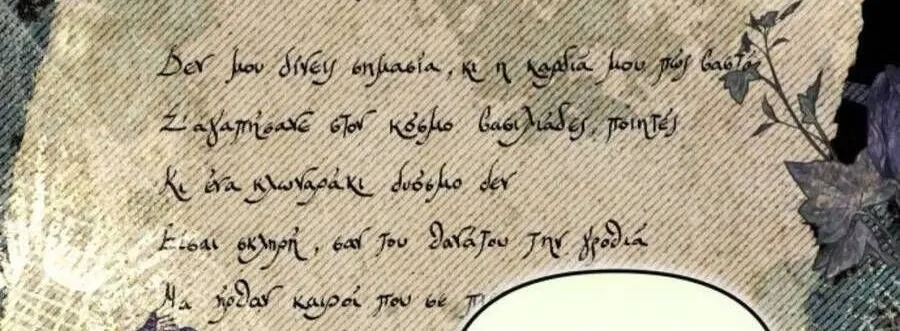 Δεν μου δίνεις σημασία, κι η καρδιά μου πώς βαστά
Σ' αγαπήσανε στον κόσμο βασιλιάδες, ποιητές
Κι ένα κλωναράκι δυόσμο δεν
Είσαι σκληρή, σαν του θανάτου την γροθιά
Μα ήρθαν καιροί που σε